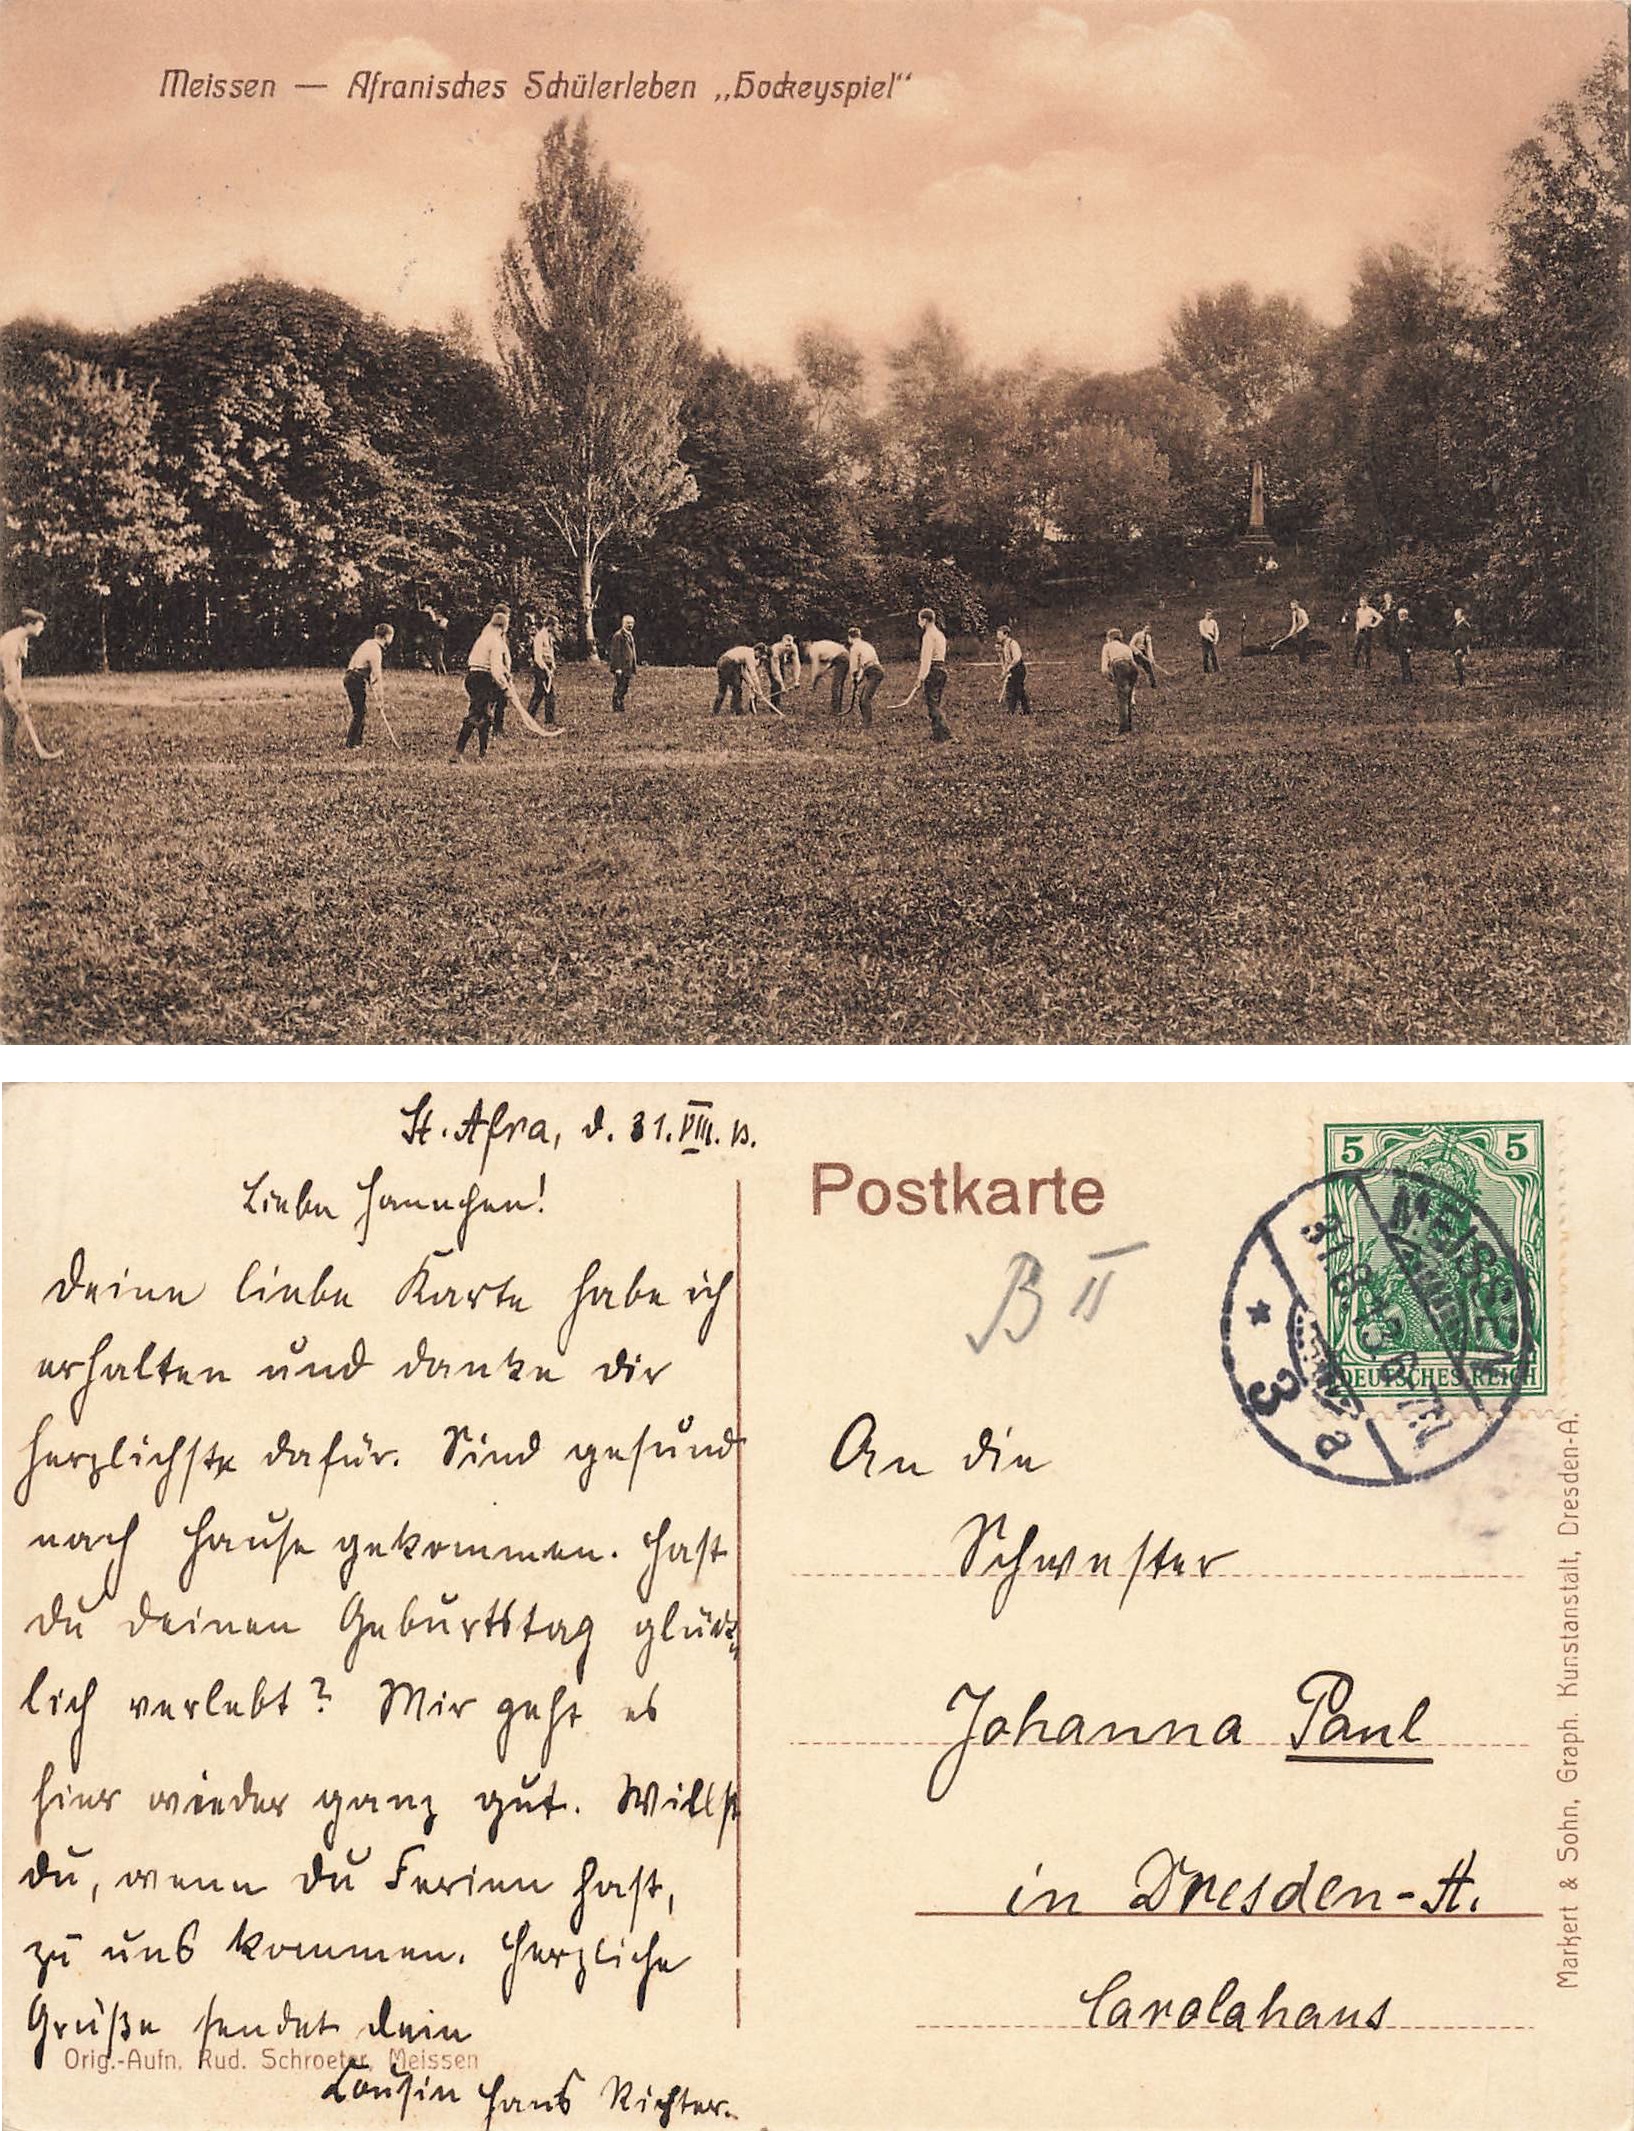 Meissen — Afranisches Schülerleben „Hockeyspiel“
St. Afra, d. 31. VIII. 13.
Liebe Hannchen!
Deine liebe Karte habe ich
erhalten und danke dir
herzlichste dafür. Sind gesund
nach Hause gekommen. Hast
du deinen Geburtstag glück-
lich verlebt? Mir geht es
hier wieder ganz gut. Willst
du, wenn du Ferien hast,
zu uns kommen. Herzliche
Grüße sendet dein
Cousin Hans Richter.
Orig.-Aufn. Rud. Schroeter, Meissen
Postkarte
B II
5 5
DEUTSCHES REICH
MEISSEN
31.8.13. 6-7N
* 3 a
An die
Schwester
Johanna Paul
in Dresden-A.
Carolahaus
Markert & Sohn, Graph. Kunstanstalt, Dresden-A.